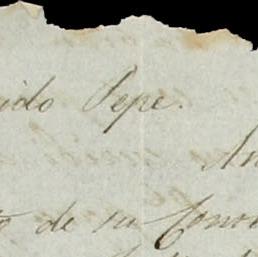 ido Pepe.
An
o de su Convo